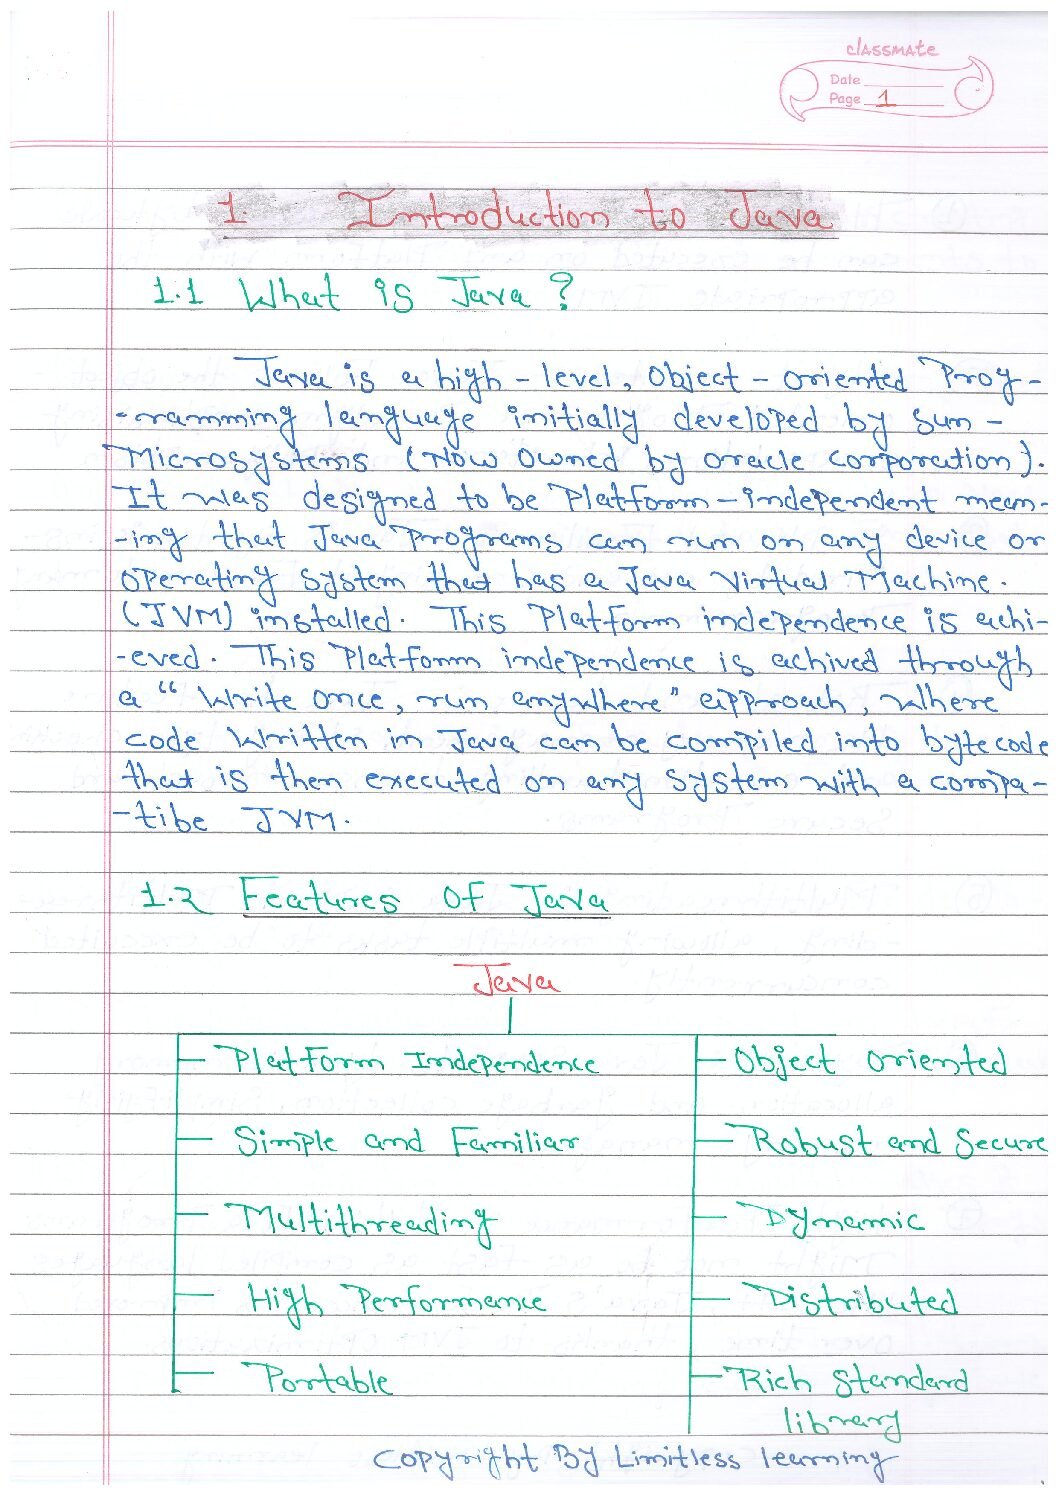 classmate
Date
Page 1
1. Introduction to Java
1.1 What is Java ?
Java is a high - level, object - oriented Prog-
-ramming language initially developed by sun -
Microsystems (Now owned by oracle corporation).
It was designed to be Platform - independent mean-
-ing that Java Programs can run on any device or
operating system that has a Java Virtual Machine.
(JVM) installed. This Platform independence is achi-
-eved. This Platform independence is achived through
a "Write once, run anywhere" approach, where
code written in Java can be compiled into bytecode
that is then executed on any system with a compa-
-tibe JVM.
1.2 Features of Java
Java
Platform Independence
Object oriented
Simple and Familiar
Robust and Secure
Multithreading
Dynamic
High Performance
Distributed
Portable
Rich Standard
library
Copyright By Limitless learning